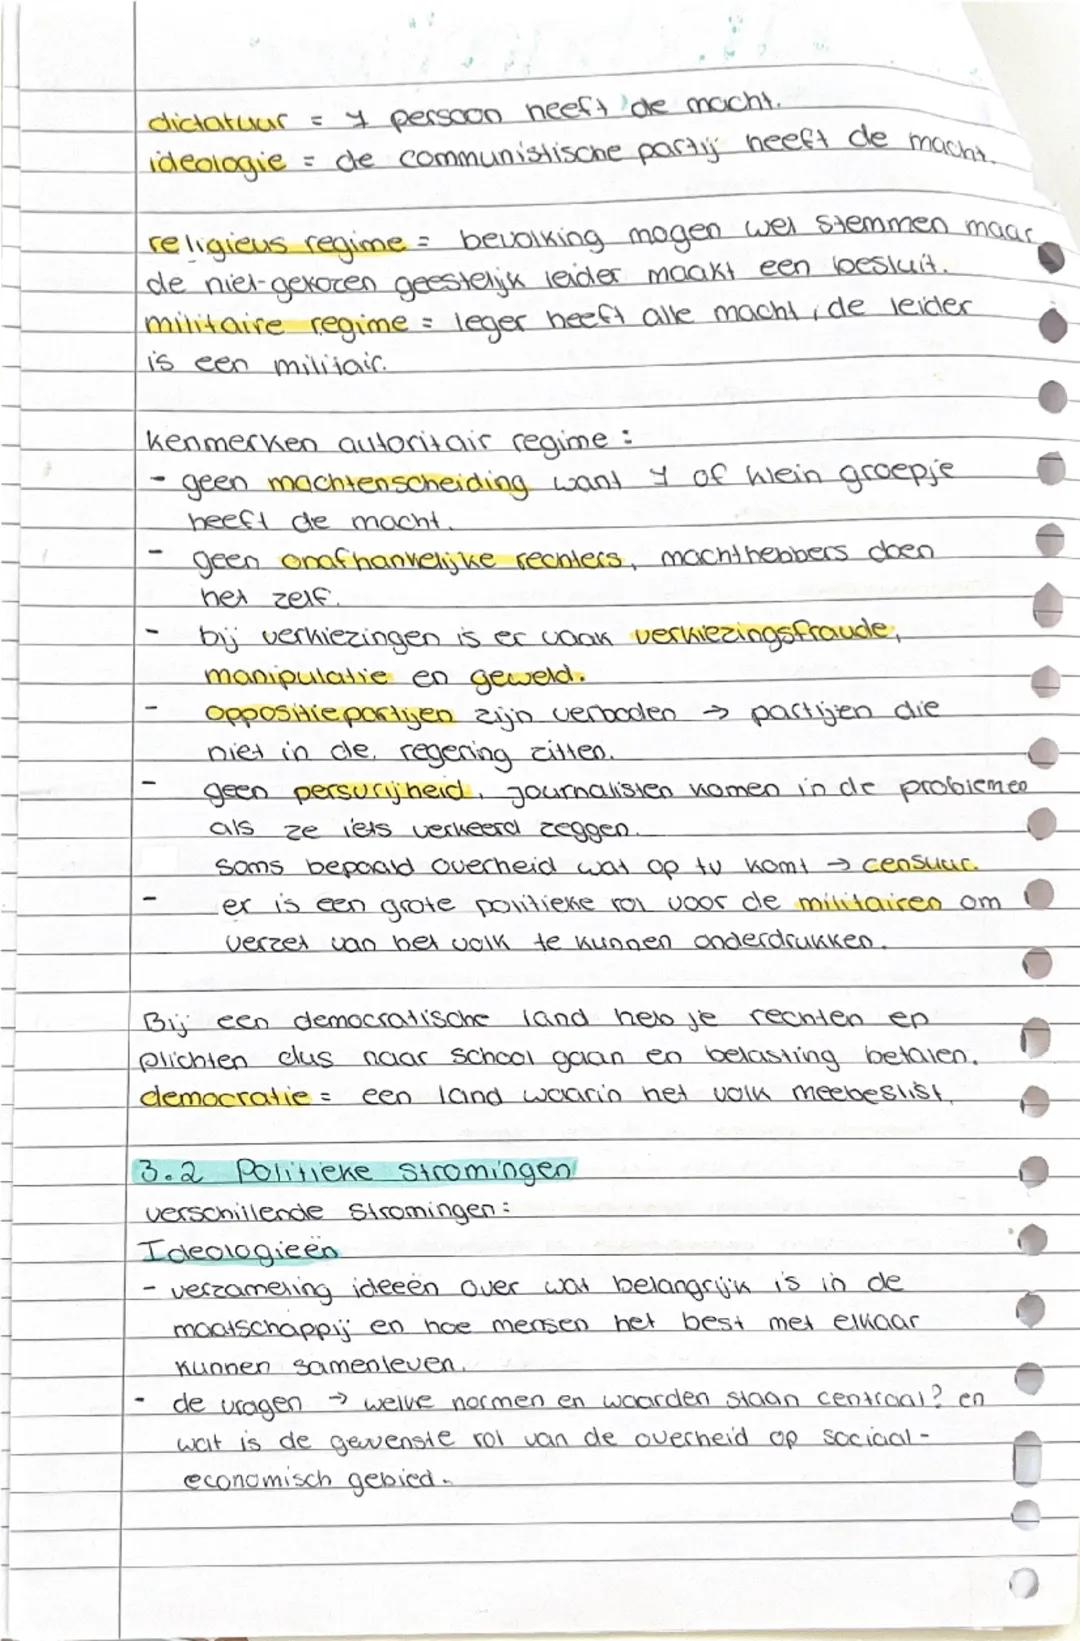 dictatuur = 1 persoon heeft de macht.
ideologie = de communistische partij heeft de macht.
religieus regime = bevolking mogen wel stemmen maar
de niet-gekozen geestelijk leider maakt een besluit.
militaire regime = leger heeft alle macht, de leider
is een militair.
kenmerken autoritair regime:
- geen machtenscheiding want 1 of klein groepje
heeft de macht.
- geen onafhankelijke rechters, machthebbers doen
het zelf.
- bij verkiezingen is er vaak verkiezingsfraude,
manipulatie en geweld.
- oppositie partijen zijn verboden → partijen die
niet in de regering zitten.
- geen persvrijheid, journalisten komen in de problemen
als ze iets verkeerd zeggen.
soms bepaald overheid wat op tv komt → censuur.
- er is een grote politieke rol voor de militairen om
verzet van het volk te kunnen onderdrukken.
Bij een democratische land heb je rechten en
plichten dus naar school gaan en belasting betalen.
democratie = een land waarin het volk meebeslist.
3.2 Politieke stromingen
verschillende stromingen:
Ideologieën
- verzameling ideeën over wat belangrijk is in de
maatschappij en hoe mensen het best met elkaar
kunnen samenleven.
- de vragen → welke normen en waarden staan centraal? en
wat is de gewenste rol van de overheid op sociaal-
economisch gebied.